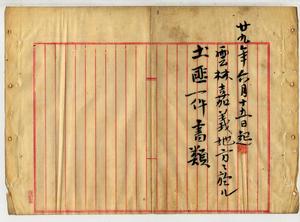 廿九年六月十五日起
雲林嘉義地方ニ於ル
土匪一件書類